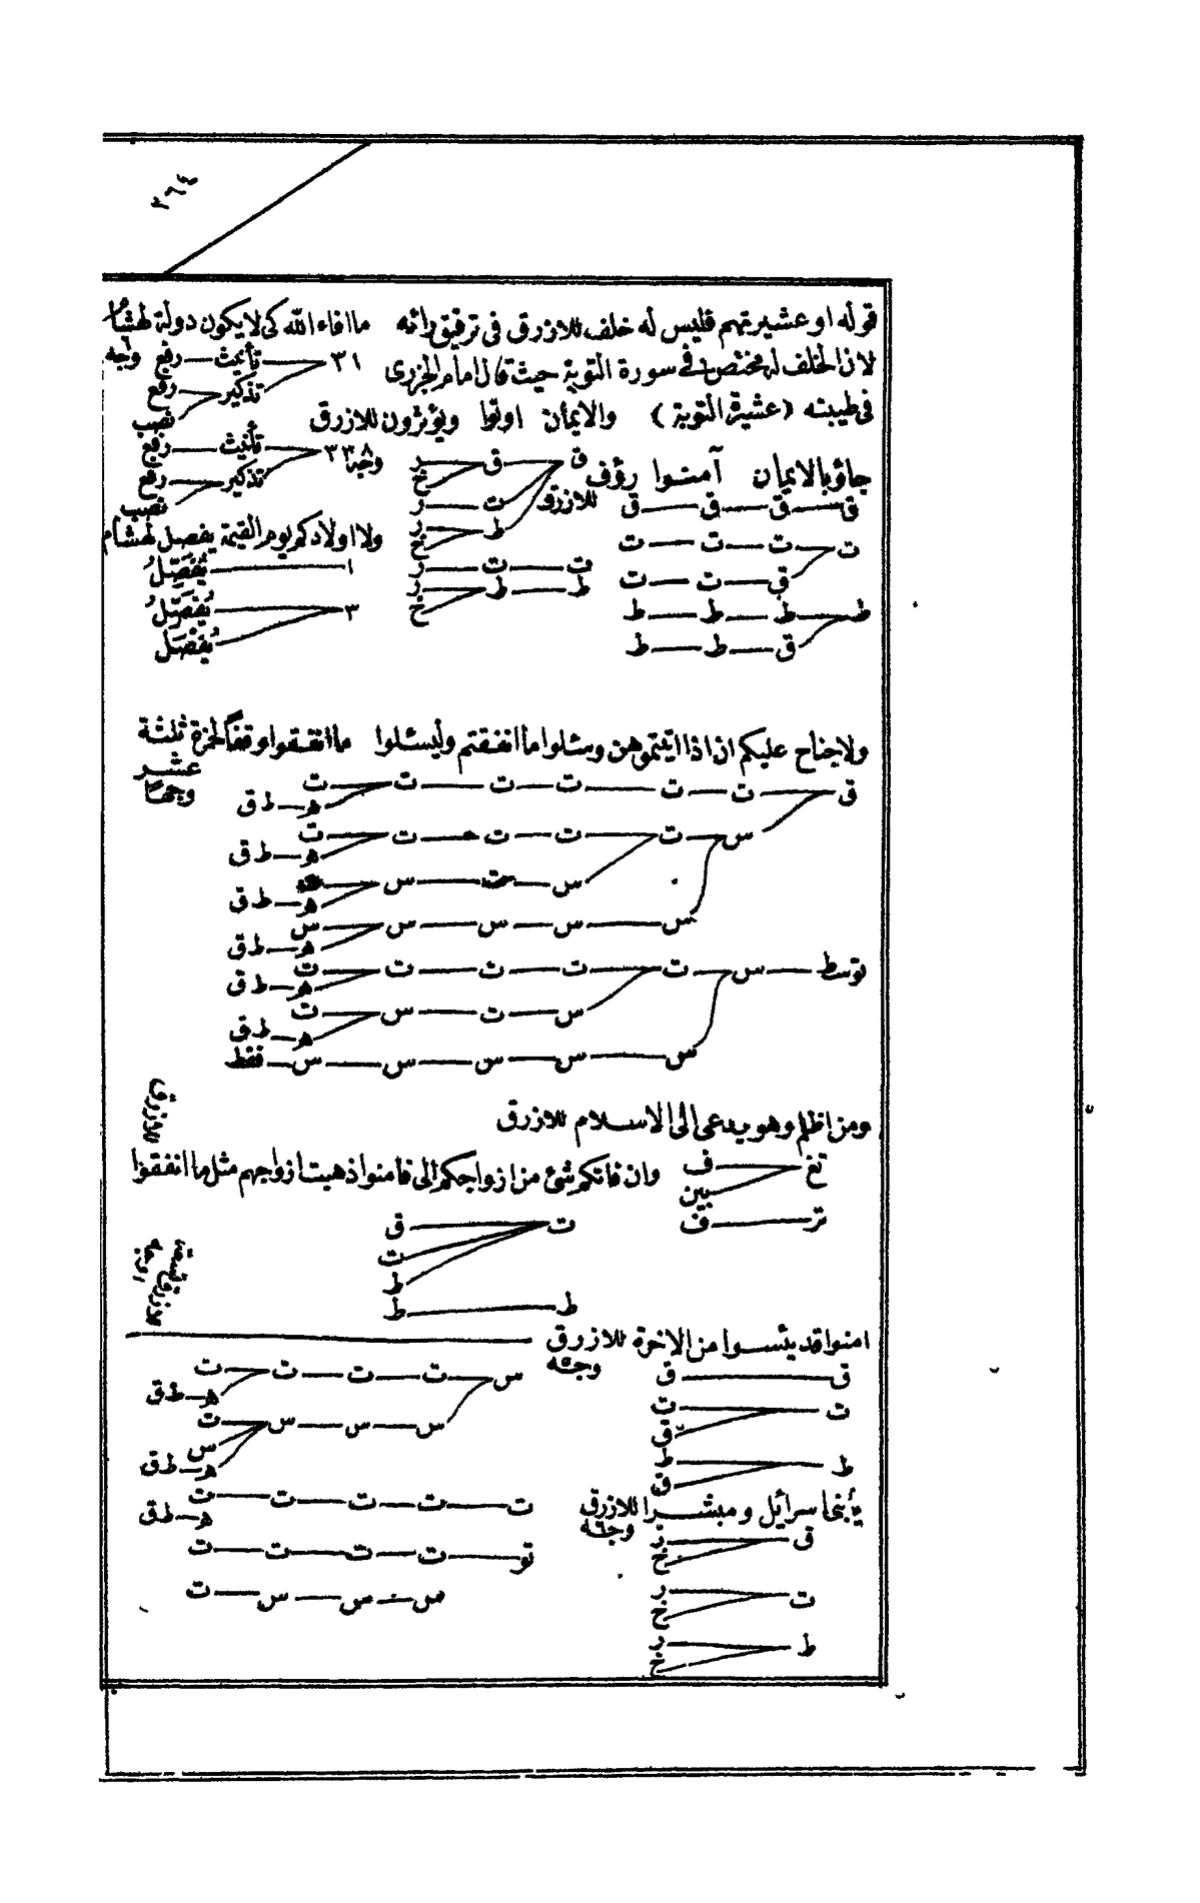 ٢٦٤
قوله او عشيرتهم فليس له خلف للازرق فى ترقيق رائه ما افاء الله كى لا يكون دولة لهشام
لان الخلف له مختص فى سورة التوبة حيث قال امام الجزرى
٣١ تأنيث رفع وجه
تذكير رفع
نصب
فى طيبته (عشيرة التوبة) والايمان اوتوا ويؤثرون للازرق
٣٣٨ تأنيث رفع
وجها تذكير رفع
نصب
ق ق ر
خ
ت ر
ط ر
خ
ت ت ر
ط ط ر
خ
جاؤ بالايمان آمنوا رؤف للازرق
ق ق ق ق
ت ت ت ت
ق ت ت
ط ط ط ط
ق ط ط
ولا اولادكم يوم القيمة يفصل لهشام
١ يُفَصَّلُ
٣ يُفَصَّلُ
يُفْصَلُ
ولا جناح عليكم ان اذا اتيتموهن وسئلوا ما انفقتم وليسئلوا ما انفقوا وقفا لحمزة ثلثة
عشر
وجها
ق ت ت ت ت ت ت
ه ط ق
س ت ت ت ت ت
ه ط ق
س ت س
ه ط ق
س س س س س
ه ط ق
توسط س ت ت ت ت ت
ه ط ق
س ت س ت
ه ط ق
س س س س س فقط
ومن اظلم وهو يدعى الى الاسلام للازرق
تغ ف
بين
تر ف
وان فاتكم شئ من ازواجكم الى فامنوا ذهبت ازواجهم مثل ما انفقوا
للازرق
ت ق
ت
ط
ط ط
للازرق
امنوا قد يئسوا من الاخرة للازرق
وجه
ق ق
ت ت
ق
ط ط
ق
س ت ت ت ت
ه ط ق
س س س ت
س
ه ط ق
ت ت ت ت ت
ه ط ق
تو ت ت ت ت
س س س ت
يبنى اسرائيل و مبشرا للازرق
وجه
ق ر
خ
ت ر
خ
ط ر
خ